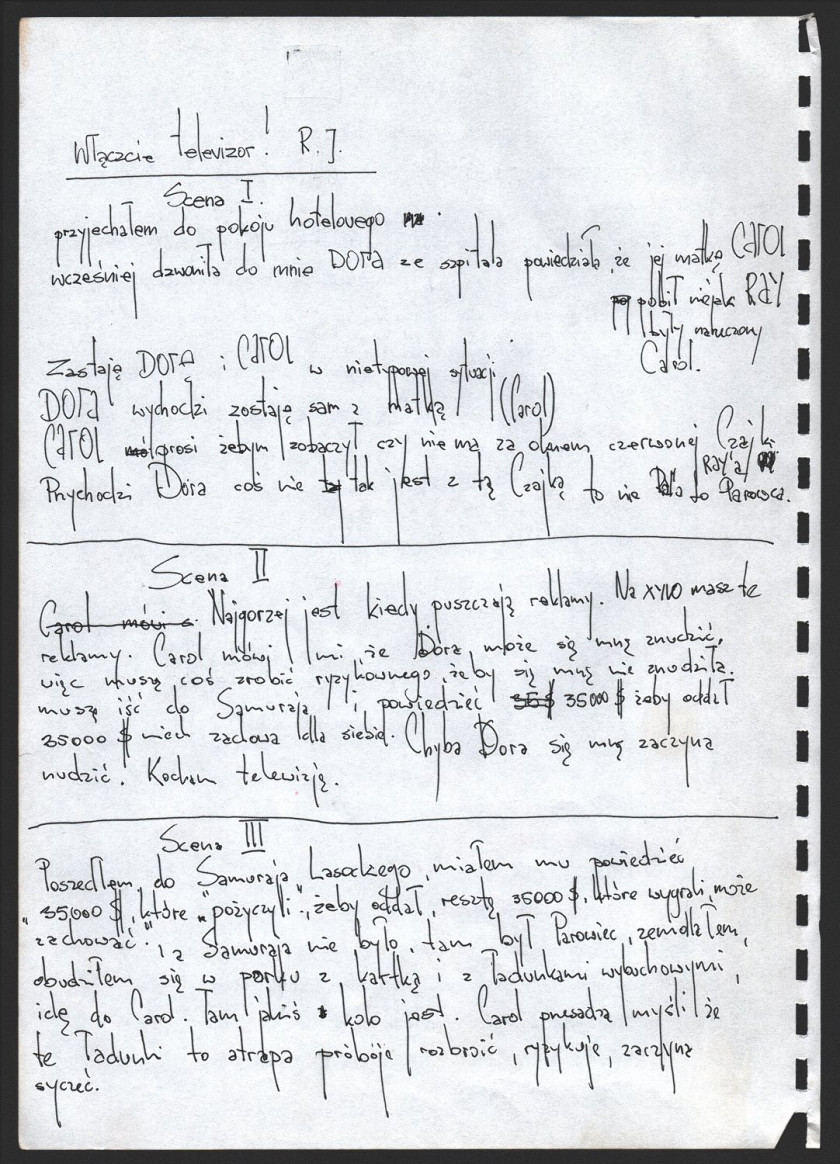 Włączcie televizor! R.J.
Scena I.
przyjechałem do pokoju hotelowego
wcześniej dzwoniła do mnie DORA ze szpitala powiedziała, że jej matkę CAROL
pobił niejaki RAY
były narzeczony
Carol.
Zastaję DORĘ i CAROL w nietypowej sytuacji
DORA wychodzi zostaję sam z matką (Carol)
CAROL prosi żebym zobaczył czy nie ma za oknem czerwonej Czajki
RAY'a
Przychodzi Dora coś nie tak jest z tą Czajką, to nie to Parowca.
Scena II
Carol mówi Najgorzej jest kiedy puszczają reklamy. Na XYLO masz te
reklamy. Carol mówi mi, że Dora może się mną znudzić,
więc muszę coś zrobić ryzykownego, żeby się mną nie znudziła.
muszę iść do Samuraja i powiedzieć 35 $ 35000 $ żeby oddał
35000 $ niech zachowa dla siebie. Chyba Dora się mną zaczyna
nudzić. Kocham telewizję.
Scena III
Poszedłem do Samuraja Lasockego, miałem mu powiedzieć
"35000 $, które "pożyczyli", żeby oddał, resztę 35000 $, które wygrali, może
zachować". Samuraja nie było, tam był Parowiec, zemdlałem,
obudziłem się w parku z kartką i z ładunkami wybuchowymi,
idę do Carol. Tam jakiś koło jest. Carol przesadza myśli że
te ładunki to atrapa próbóje rozbroić, ryzykuje, zaczyna
syczeć.